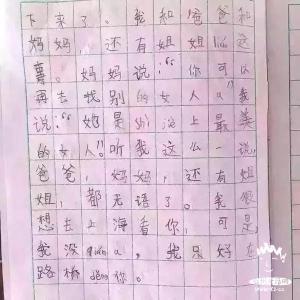 下来了。我和爸爸和
妈妈，还有姐姐liáo这
事。妈妈说：“你可以
再去找别的女人a”我
说：“她是shì jiè上最美
的女人”！听我这么一说，
爸爸，妈妈，还有姐
姐，都无语了。我很
想去上海看你，可是，
我没qián a，我只好在
路桥děng你。